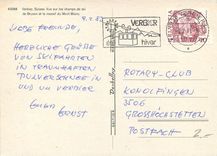 Verbier, Suisse. Vue sur les champs de ski
de Bruson et le massif du Mont Blanc
9.2.82
LIEBE FREUNDE,
HERZLICHE GRÜSSE
VON SKIFAHRTEN
IN TRAUMHAFTEM
PULVERSCHNEE IN
UND UM VERBIER
Ernst
VERBIER
hiver
HELVETIA
ROTARY-CLUB
KONOLFINGEN
3506
GROSSHÖCHSTETTEN
POSTFACH
2.-